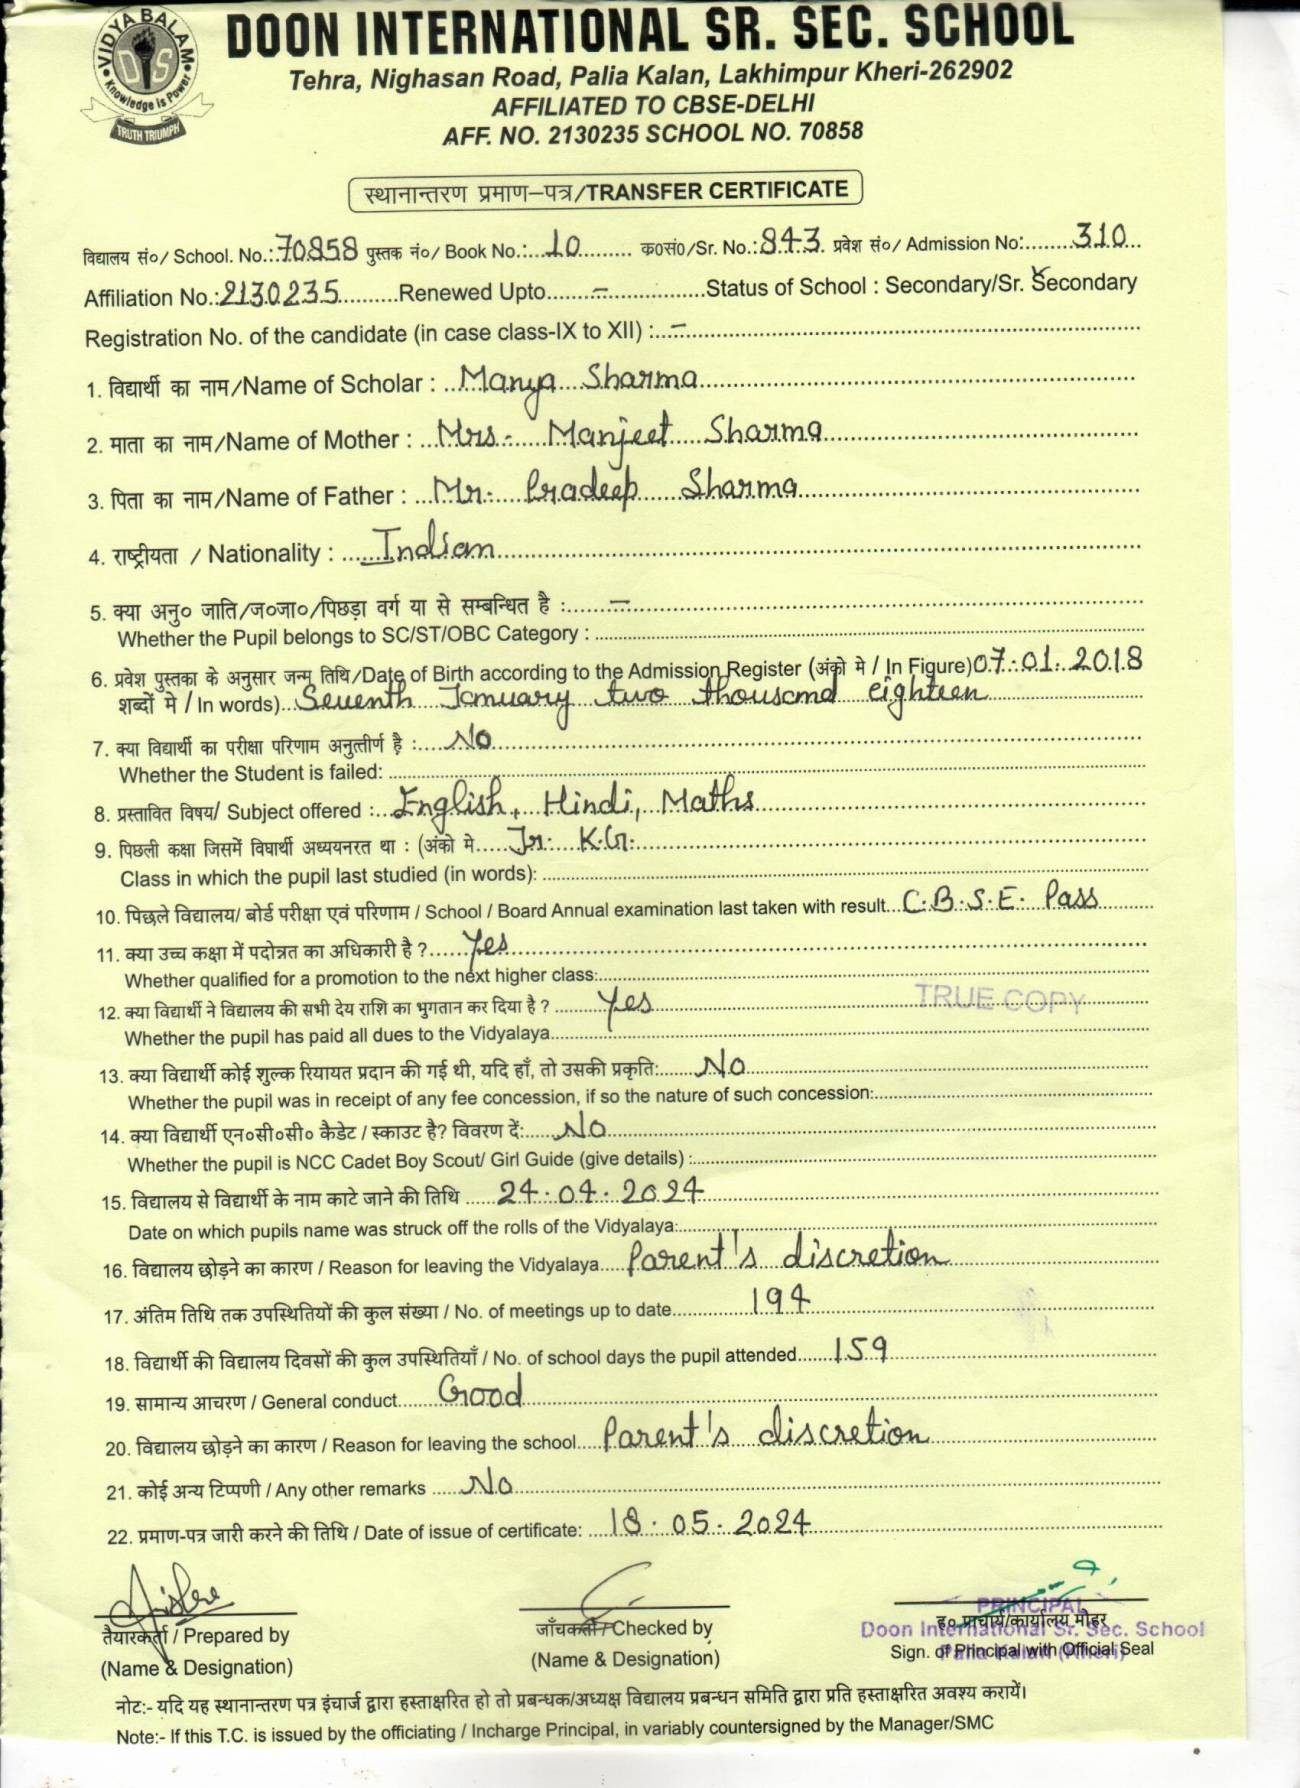 VIDYA BALAM
DIS
Knowledge is Power
TRUTH TRIUMPH
DOON INTERNATIONAL SR. SEC. SCHOOL
Tehra, Nighasan Road, Palia Kalan, Lakhimpur Kheri-262902
AFFILIATED TO CBSE-DELHI
AFF. NO. 2130235 SCHOOL NO. 70858
स्थानान्तरण प्रमाण–पत्र/TRANSFER CERTIFICATE
विद्यालय सं०/ School. No.: 70858 पुस्तक नं०/ Book No.: 10 क०सं०/Sr. No.: 843 प्रवेश सं०/ Admission No: 310
Affiliation No.: 2130235 Renewed Upto – Status of School : Secondary/Sr. Secondary
Registration No. of the candidate (in case class-IX to XII) : –
1. विद्यार्थी का नाम/Name of Scholar : Manya Sharma
2. माता का नाम/Name of Mother : Mrs. Manjeet Sharma
3. पिता का नाम/Name of Father : Mr. Pradeep Sharma
4. राष्ट्रीयता / Nationality : Indian
5. क्या अनु० जाति/ज०जा०/पिछड़ा वर्ग या से सम्बन्धित है : –
Whether the Pupil belongs to SC/ST/OBC Category :
6. प्रवेश पुस्तका के अनुसार जन्म तिथि/Date of Birth according to the Admission Register (अंको मे / In Figure) 07.01.2018
शब्दों मे / In words) Seventh January two thousand eighteen
7. क्या विद्यार्थी का परीक्षा परिणाम अनुत्तीर्ण है : No
Whether the Student is failed:
8. प्रस्तावित विषय/ Subject offered : English, Hindi, Maths
9. पिछली कक्षा जिसमें विघार्थी अध्ययनरत था : (अंको मे Jr. K.G.
Class in which the pupil last studied (in words):
10. पिछले विद्यालय/ बोर्ड परीक्षा एवं परिणाम / School / Board Annual examination last taken with result C.B.S.E. Pass
11. क्या उच्च कक्षा में पदोन्नत का अधिकारी है ? Yes
Whether qualified for a promotion to the next higher class:
12. क्या विद्यार्थी ने विद्यालय की सभी देय राशि का भुगतान कर दिया है ? Yes
TRUE COPY
Whether the pupil has paid all dues to the Vidyalaya
13. क्या विद्यार्थी कोई शुल्क रियायत प्रदान की गई थी, यदि हाँ, तो उसकी प्रकृति: No
Whether the pupil was in receipt of any fee concession, if so the nature of such concession:
14. क्या विद्यार्थी एन०सी०सी० कैडेट / स्काउट है? विवरण दें: No
Whether the pupil is NCC Cadet Boy Scout/ Girl Guide (give details) :
15. विद्यालय से विद्यार्थी के नाम काटे जाने की तिथि 24.04.2024
Date on which pupils name was struck off the rolls of the Vidyalaya:
16. विद्यालय छोड़ने का कारण / Reason for leaving the Vidyalaya Parent's discretion
17. अंतिम तिथि तक उपस्थितियों की कुल संख्या / No. of meetings up to date 194
18. विद्यार्थी की विद्यालय दिवसों की कुल उपस्थितियाँ / No. of school days the pupil attended 159
19. सामान्य आचरण / General conduct Good
20. विद्यालय छोड़ने का कारण / Reason for leaving the school Parent's discretion
21. कोई अन्य टिप्पणी / Any other remarks No
22. प्रमाण-पत्र जारी करने की तिथि / Date of issue of certificate: 18.05.2024
तैयारकर्ता / Prepared by
(Name & Designation)
जाँचकर्ता / Checked by
(Name & Designation)
PRINCIPAL
ह० प्राचार्य/कार्यालय मौहर
Doon International Sr. Sec. School
Sign. of Principal with Official Seal
Palia Kalan (Kheri)
नोटः- यदि यह स्थानान्तरण पत्र इंचार्ज द्वारा हस्ताक्षरित हो तो प्रबन्धक/अध्यक्ष विद्यालय प्रबन्धन समिति द्वारा प्रति हस्ताक्षरित अवश्य करायें।
Note:- If this T.C. is issued by the officiating / Incharge Principal, in variably countersigned by the Manager/SMC